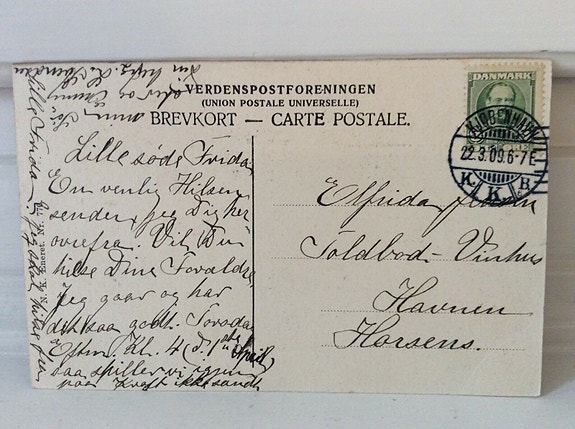 VERDENSPOSTFORENINGEN
(UNION POSTALE UNIVERSELLE)
BREVKORT — CARTE POSTALE.
DANMARK
KJØBENHAVN
22.3.09.6-7E
K. K B.
Lille søde Frida
En venlig Hilsen
sender jeg Dig her
ovrefra. Vil Du
hilse Dine Forældre
Jeg gaar og har
det saa godt. Torsdag
Eftm. Kl. 4 (d. 1ste April)
saa spiller vi igen
ikke sandt
Elfrida Jensen
Toldbod-Vinhus
Havnen
Horsens.
Lille Frida
jeg skal hilse fra